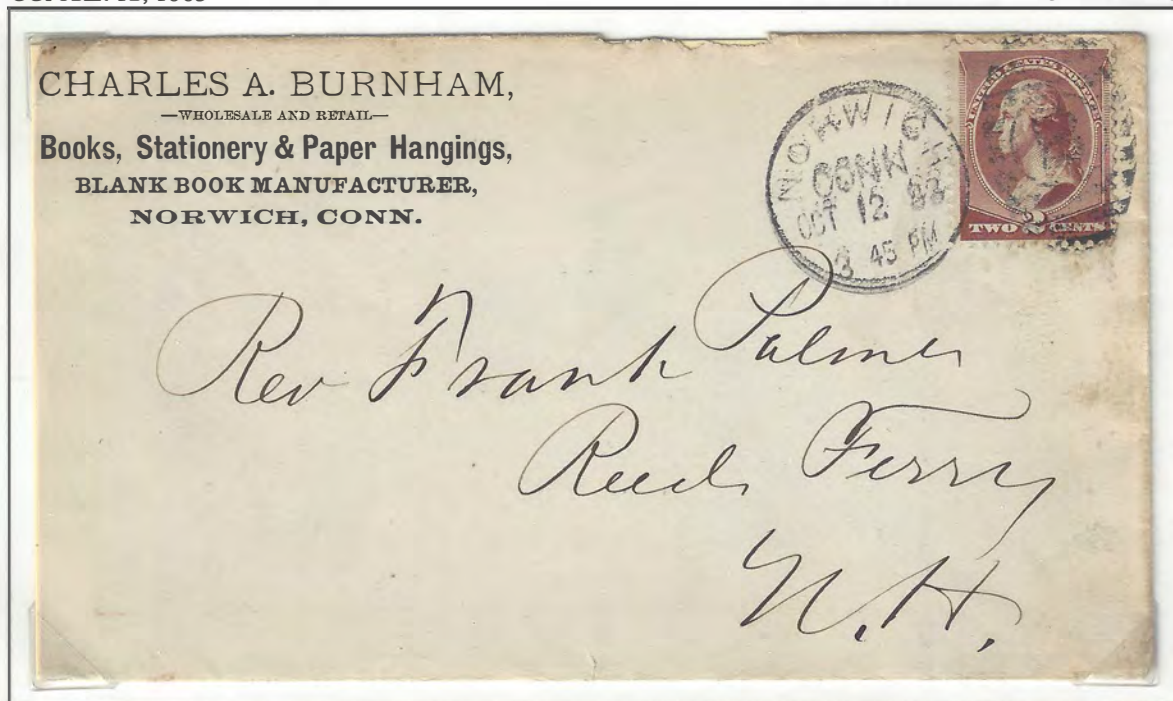 CHARLES A. BURNHAM,
—WHOLESALE AND RETAIL—
Books, Stationery & Paper Hangings,
BLANK BOOK MANUFACTURER,
NORWICH, CONN.
NORWICH
CONN
OCT 12
3 45 PM
UNITED STATES POSTAGE
TWO 2 CENTS
Rev Frank Palmer
Reeds Ferry
N.H.